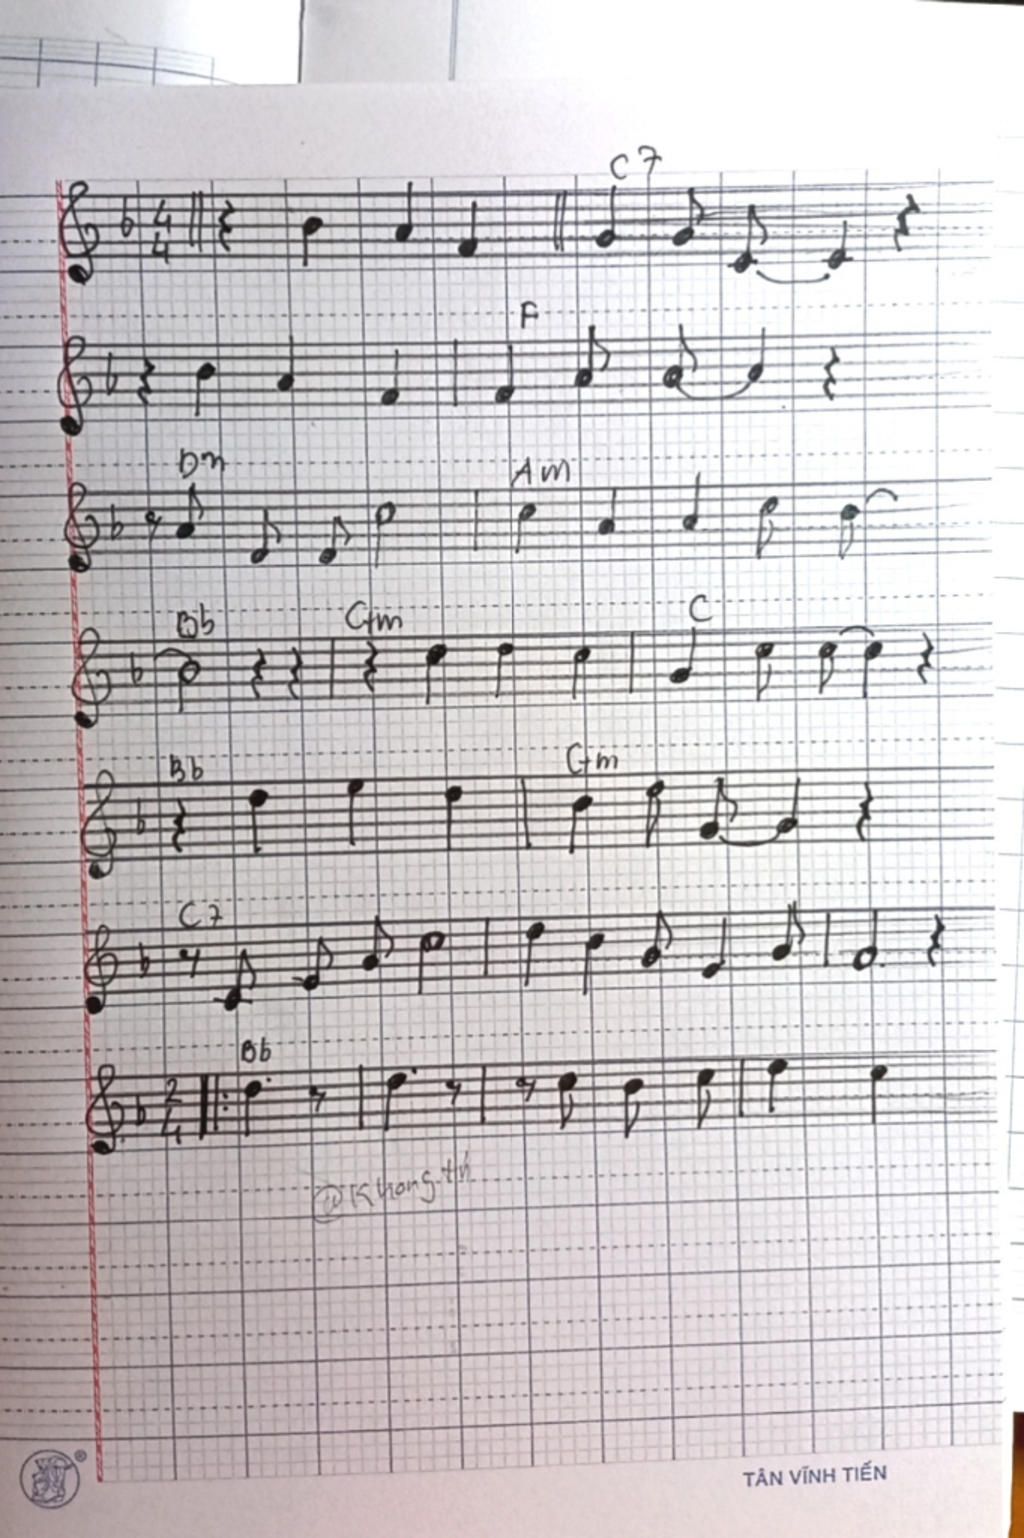 C7
4
4
F
Dm
Am
Bb Gm C
Bb Gm
C7
Bb
2
4
TÂN VĨNH TIẾN
®